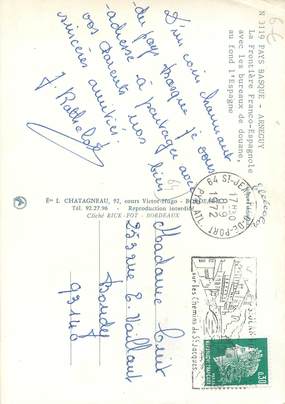 N 3119 PAYS BASQUE - ARNEGUY
La Frontière Franco-Espagnole
avec les bureaux de douane,
au fond l'Espagne
6€
D'un coin charmant
du pays basque je vous
adresse à partager avec
vos parents nos bien
sincères amitiés.
64
Ets L. CHATAGNEAU, 92, cours Victor-Hugo - BORDEAUX
Tél. 92.27.96 - Reproduction interdite
Cliché RICK-FOT - BORDEAUX
64 ST-JEAN-PIED-DE-PORT
17H30
1972
sur les Chemins de St Jacques
0,30
Madame
253 rue E. Vaillant
Bondy
93140